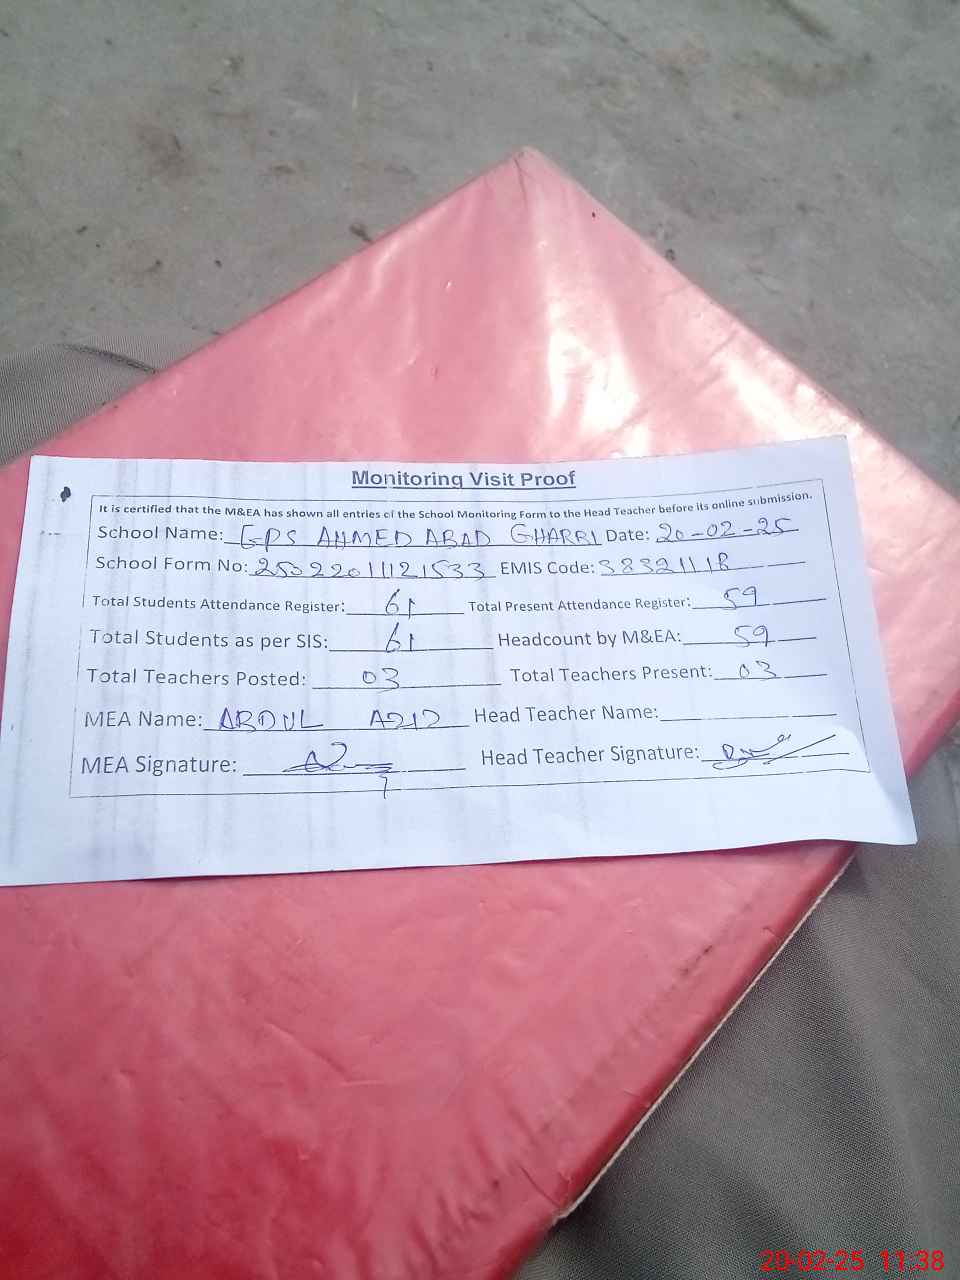 Monitoring Visit Proof
It is certified that the M&EA has shown all entries of the School Monitoring Form to the Head Teacher before its online submission.
School Name: GPS AHMED ABAD GHARRI Date: 20-02-25
School Form No: 2502201121533 EMIS Code: 38321118
Total Students Attendance Register: 61 Total Present Attendance Register: 59
Total Students as per SIS: 61 Headcount by M&EA: 59
Total Teachers Posted: 03 Total Teachers Present: 03
MEA Name: ABDUL AZIZ Head Teacher Name:
MEA Signature: Head Teacher Signature:
20-02-25 11:38